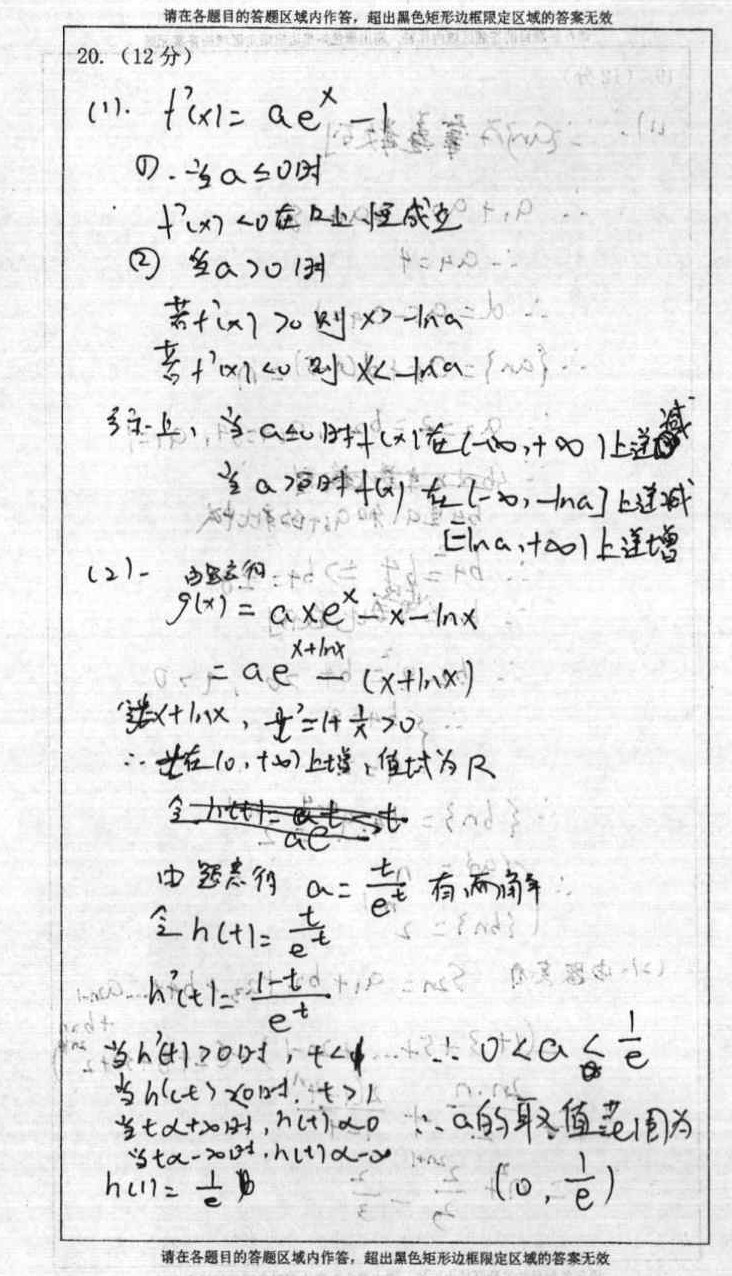 请在各题目的答题区域内作答，超出黑色矩形边框限定区域的答案无效
20.（12分）
(1). f'(x) = ae^x - 1
①. 当 a ≤ 0 时
f'(x) < 0 在 R 上恒成立
② 当 a > 0 时
若 f'(x) > 0 则 x > -lna
若 f'(x) < 0 则 x < -lna
综上, 当 a≤0 时 f(x) 在 (-∞, +∞) 上递减
当 a>0时 f(x) 在 (-∞, -lna] 上递减
[-lna, +∞) 上递增
(2). 由题意得
g(x) = axe^x - x - lnx
= ae^{x+lnx} - (x+lnx)
x+lnx, t' = 1+1/x > 0
∴ t在(0, +∞)上增, 值域为 R
由题意得 a = t/e^t 有两解
令 h(t) = t/e^t
h'(t) = (1-t)/e^t
当 h'(t) > 0 时, t < 1
当 h'(t) < 0 时, t > 1
当 t∝+∞时, h(t)∝0
当 t∝-∞时, h(t)∝-∞
h(1) = 1/e
∴ 0 < a < 1/e
∴ a的取值范围为
(0, 1/e)
请在各题目的答题区域内作答，超出黑色矩形边框限定区域的答案无效